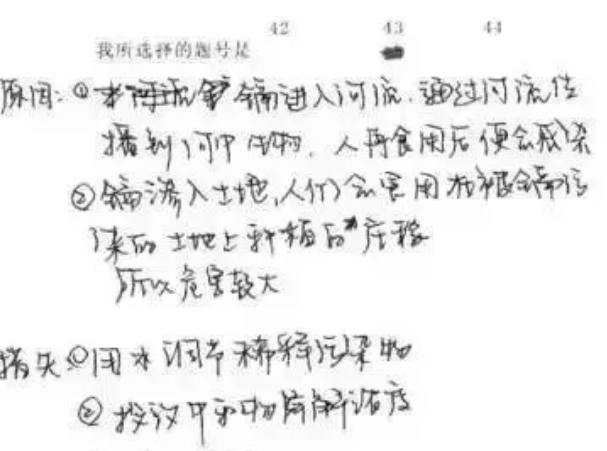 42 43 44
我所选择的题号是
原因:① 镉进入河流.通过河流传
播到河中生物.人再食用后便会感染
②镉渗入土地,人们会食用在被镉污
染的土地上种植的庄稼
所以危害较大
措失①用水调节稀释污染物
②投放中和物质降解浓度